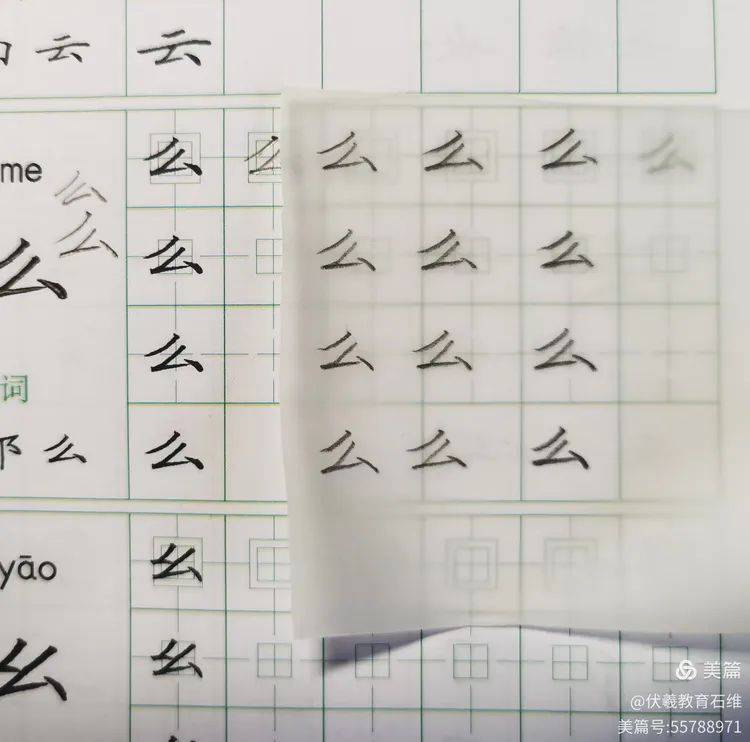 云 云
me 么 么 么 么 么 么 么
么 么 么 么 么 么
么 么 么 么
词
么 么 么 么 么
yāo 幺
幺 幺
美篇
@伏羲教育石维
美篇号:55788971